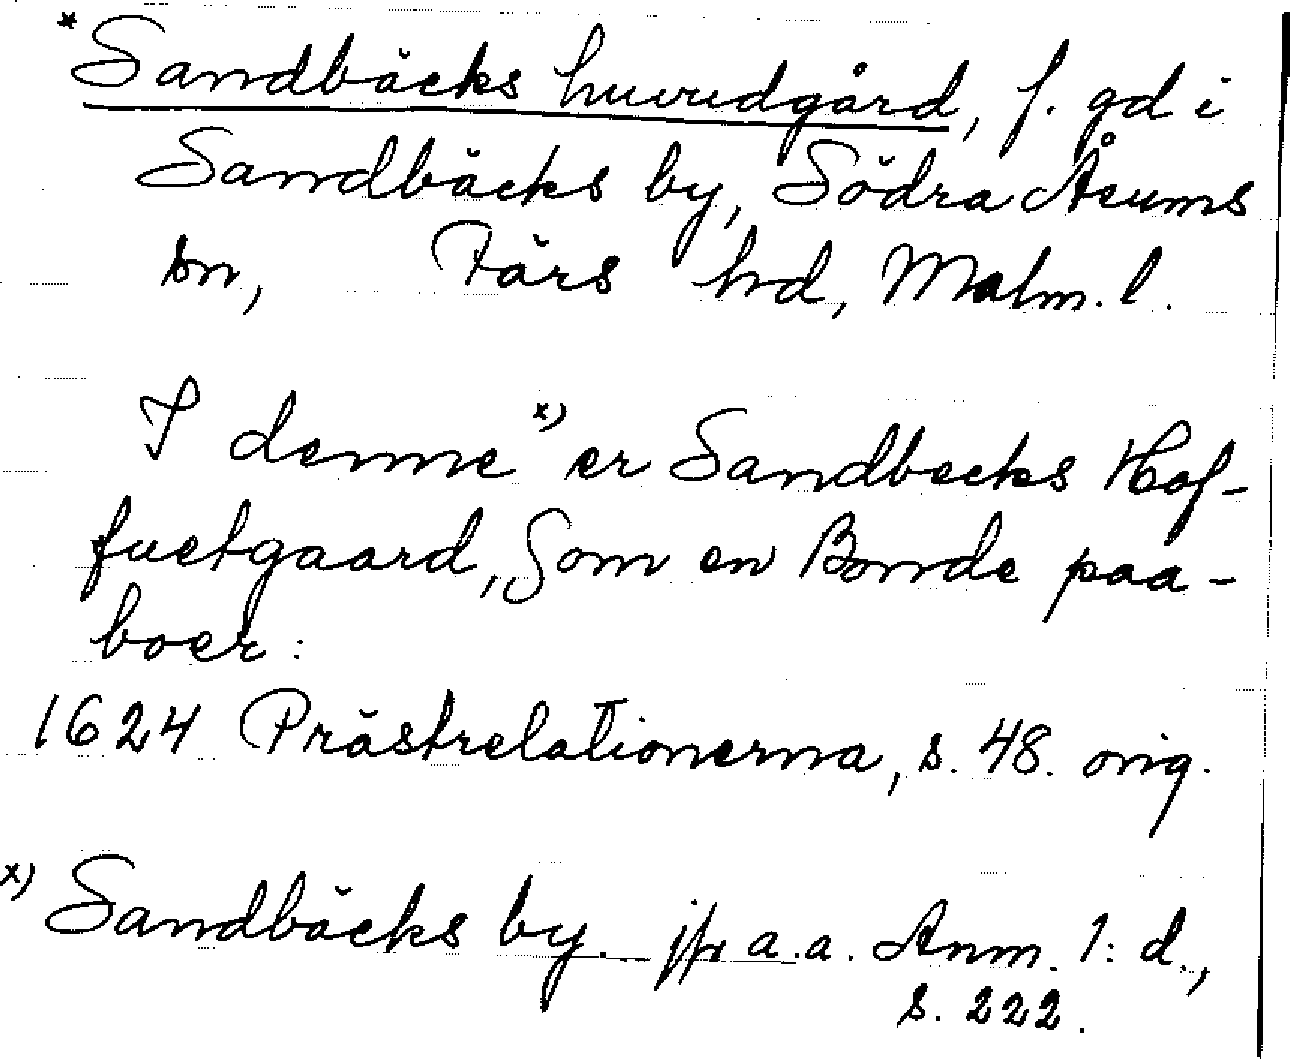 *Sandbäcks huvudgård, f. gd i
Sandbäcks by, Södra Åsums
sn, Färs hd, Malm. l.
I denne x) er Sandbecks Hof-
fuetgaard, Som en Bonde paa-
boer:
1624 Prästrelationerna, s. 48. orig.
x) Sandbäcks by. jfr a.a. Anm. 1: d.,
s. 222.